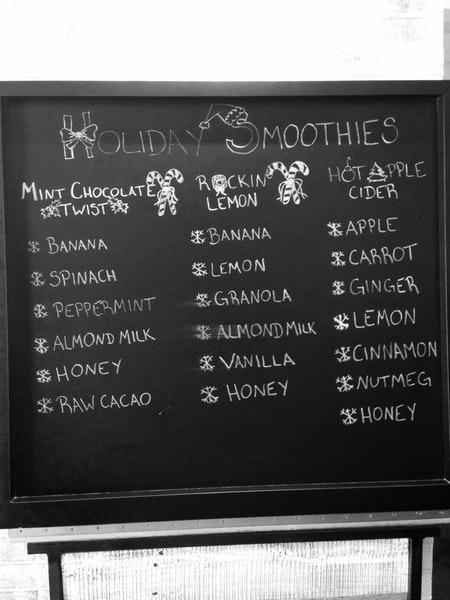 HOLIDAY SMOOTHIES
MINT CHOCOLATE
TWIST
BANANA
SPINACH
PEPPERMINT
ALMOND MILK
HONEY
RAW CACAO
ROCKIN
LEMON
BANANA
LEMON
GRANOLA
ALMOND MILK
VANILLA
HONEY
HOT APPLE
CIDER
APPLE
CARROT
GINGER
LEMON
CINNAMON
NUTMEG
HONEY